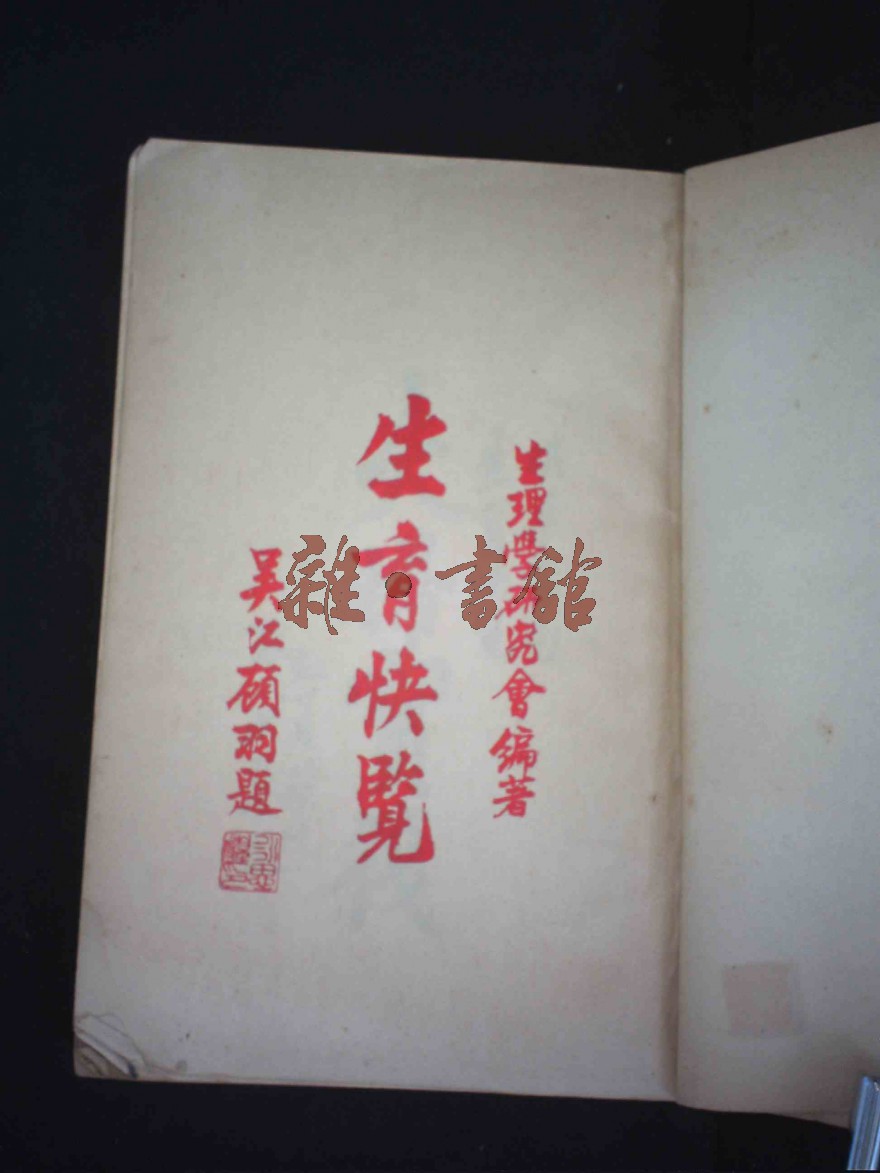 生理學研究會編著
生育快覽
吴江顾羽題
雜·書館